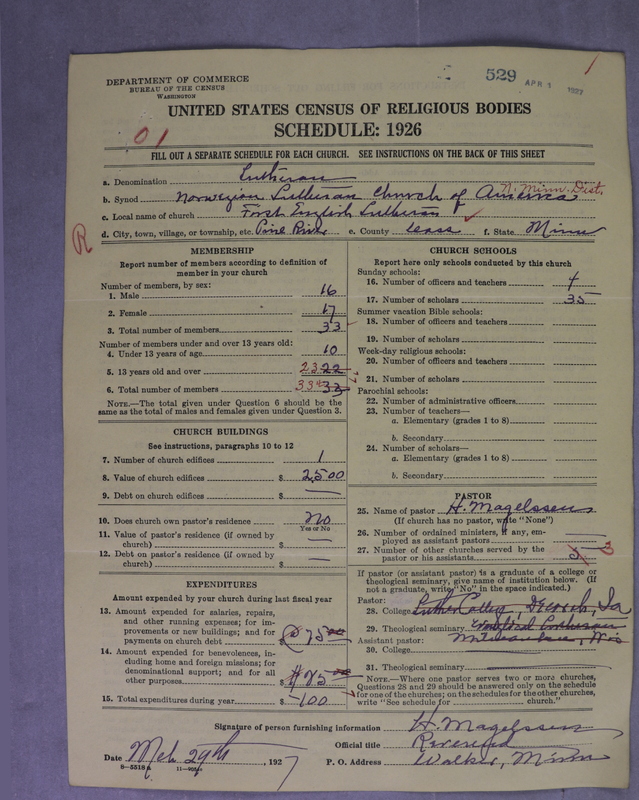 529 APR 1 1927
1
DEPARTMENT OF COMMERCE
BUREAU OF THE CENSUS
WASHINGTON
UNITED STATES CENSUS OF RELIGIOUS BODIES
SCHEDULE: 1926
01
FILL OUT A SEPARATE SCHEDULE FOR EACH CHURCH. SEE INSTRUCTIONS ON THE BACK OF THIS SHEET
a. Denomination Lutheran
b. Synod Norwegian Lutheran Church of America N. Minn. Dist.
c. Local name of church First English Lutheran
d. City, town, village, or township, etc. Pine River e. County Cass f. State Minn
R
MEMBERSHIP
Report number of members according to definition of
member in your church
Number of members, by sex:
1. Male 16
2. Female 17
3. Total number of members 33
Number of members under and over 13 years old:
4. Under 13 years of age 10
5. 13 years old and over 23 22
6. Total number of members 33 33
NOTE.—The total given under Question 6 should be the
same as the total of males and females given under Question 3.
CHURCH BUILDINGS
See instructions, paragraphs 10 to 12
7. Number of church edifices 1
8. Value of church edifices $ 2500
9. Debt on church edifices $ —
10. Does church own pastor's residence No
Yes or No
11. Value of pastor's residence (if owned by
church) $ —
12. Debt on pastor's residence (if owned by
church) $ —
EXPENDITURES
Amount expended by your church during last fiscal year
13. Amount expended for salaries, repairs,
and other running expenses; for im-
provements or new buildings; and for
payments on church debt $ 75
14. Amount expended for benevolences, in-
cluding home and foreign missions; for
denominational support; and for all
other purposes $ 25
15. Total expenditures during year $ 100
CHURCH SCHOOLS
Report here only schools conducted by this church
Sunday schools:
16. Number of officers and teachers 4
17. Number of scholars 35
Summer vacation Bible schools:
18. Number of officers and teachers
19. Number of scholars
Week-day religious schools:
20. Number of officers and teachers
21. Number of scholars
Parochial schools:
22. Number of administrative officers
23. Number of teachers—
a. Elementary (grades 1 to 8)
b. Secondary
24. Number of scholars—
a. Elementary (grades 1 to 8)
b. Secondary
PASTOR
25. Name of pastor H. Magelssen
(If church has no pastor, write "None")
26. Number of ordained ministers, if any, em-
ployed as assistant pastors —
27. Number of other churches served by the
pastor or his assistants 3
If pastor (or assistant pastor) is a graduate of a college or
theological seminary, give name of institution below. (If
not a graduate, write "No" in the space indicated.)
Pastor:
28. College Luther College, Decorah, Ia
29. Theological seminary
Assistant pastor: Milwaukee, Wis
30. College
31. Theological seminary
NOTE.—Where one pastor serves two or more churches,
Questions 28 and 29 should be answered only on the schedule
for one of the churches; on the schedules for the other churches,
write "See schedule for church."
Signature of person furnishing information H. Magelssen
Official title Reverend
Date Mch 29th, 1927 P. O. Address Walker, Minn
8—5518a 11—9051